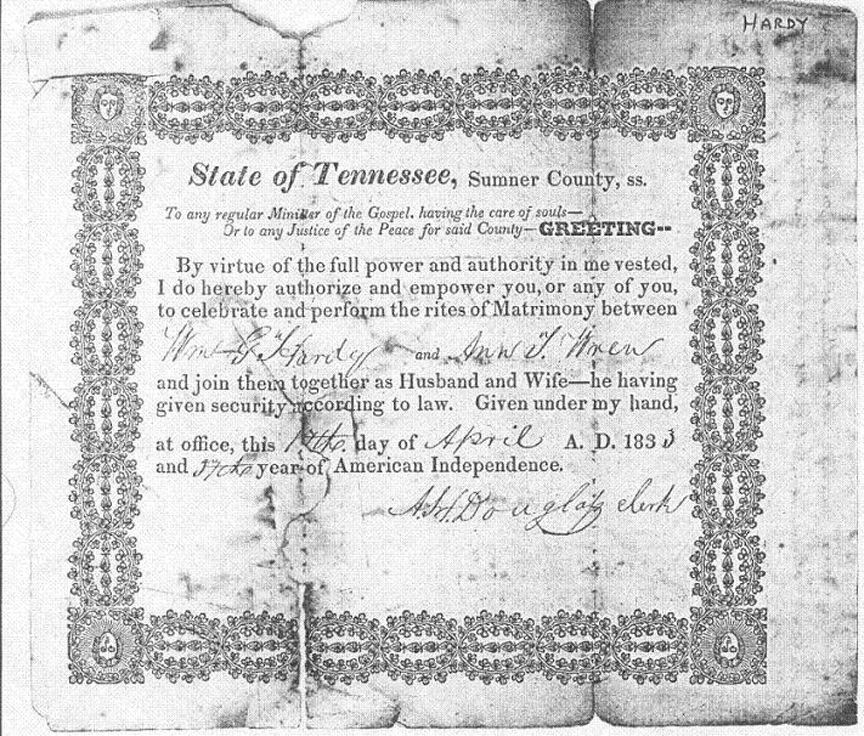 HARDY
State of Tennessee, Sumner County, ss.
To any regular Minister of the Gospel. having the care of souls—
Or to any Justice of the Peace for said County—GREETING--
By virtue of the full power and authority in me vested,
I do hereby authorize and empower you, or any of you,
to celebrate and perform the rites of Matrimony between
Wm G Hardy and Ann T. Wren
and join them together as Husband and Wife—he having
given security according to law. Given under my hand,
at office, this day of April A. D. 1833
and 57th year of American Independence.
Douglass clerk